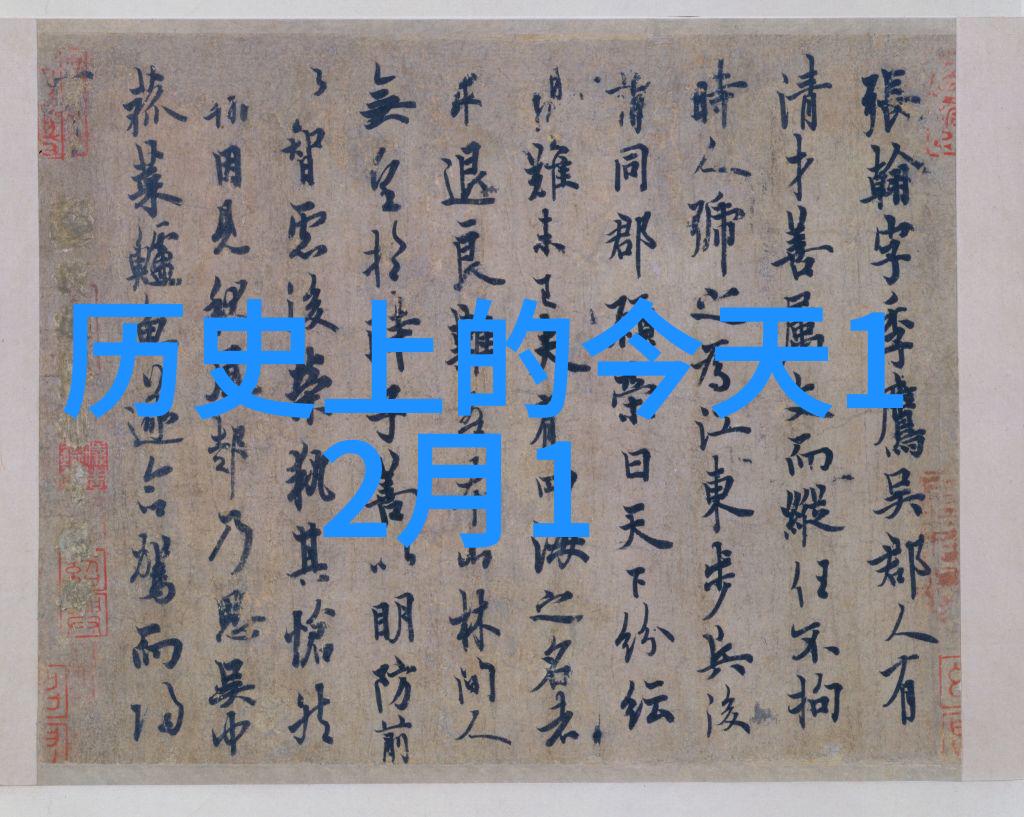 历史上的今天1
2月1
張翰字季鷹吳郡人有
清才善屬文而縱任不拘
時人號之為江東步兵後
謂同郡顧榮曰天下紛紜
難未已夫有四海之名者
求退良難吾本山林間人
無望於時子善以明防前
以智慮後榮執其愴然
翰因見秋風起乃思吳中
菰菜鱸魚遂命駕而歸